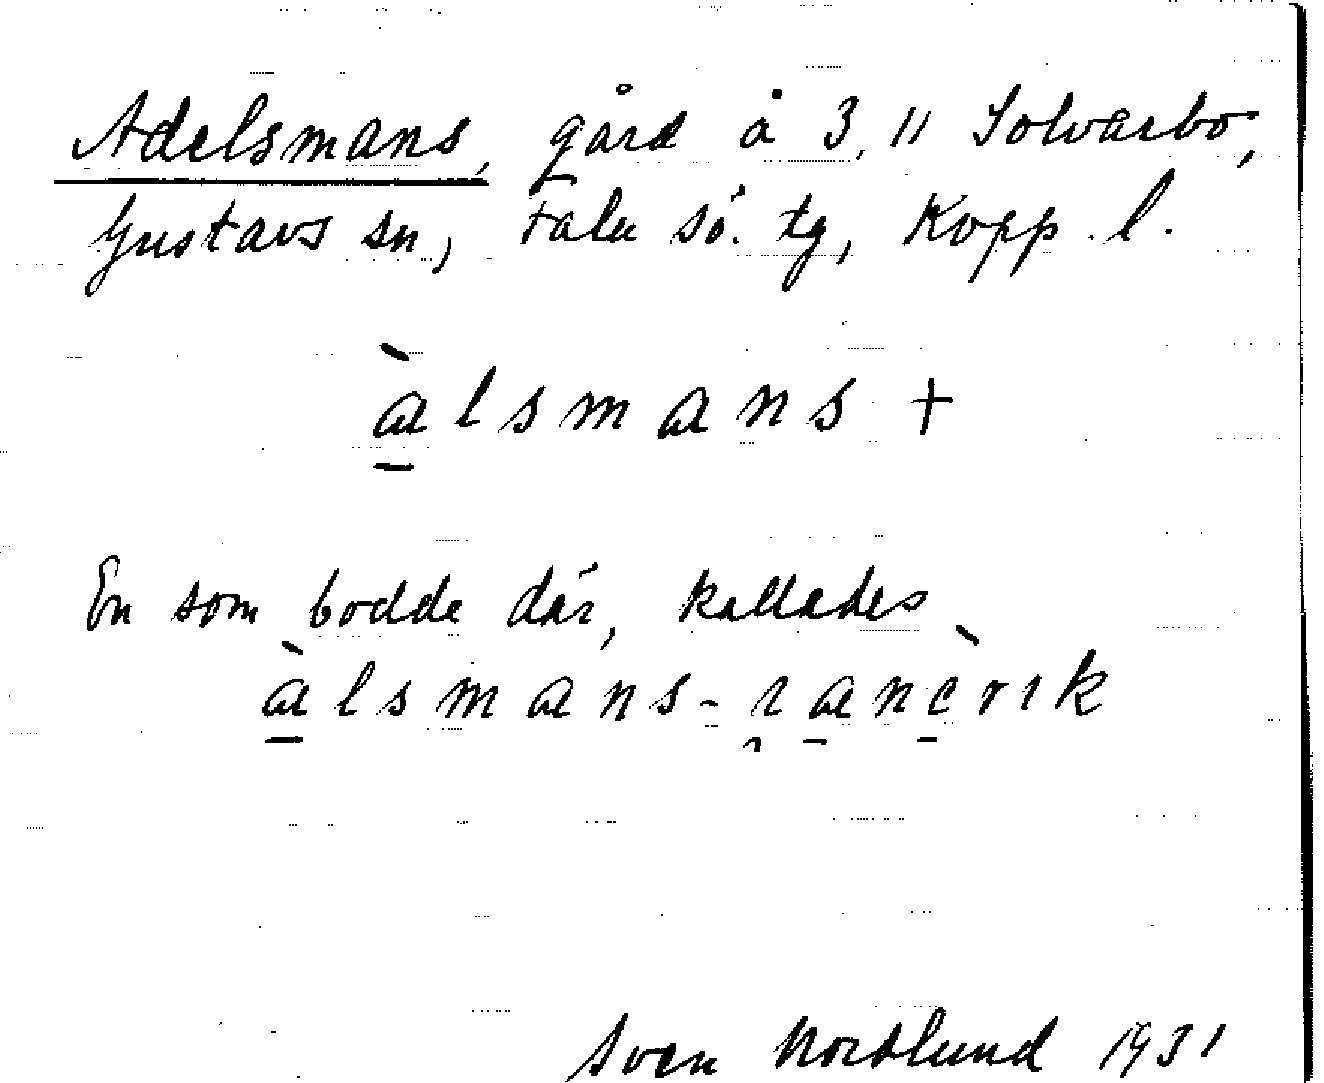 Adelsmans, gård å 3, 11 Solvarbo,
Gustavs sn, Falu sö. tg, Kopp. l.
àlsmans +
En som bodde där, kallades
àlsmans-ɿancrık
Sven Nordlund 1931